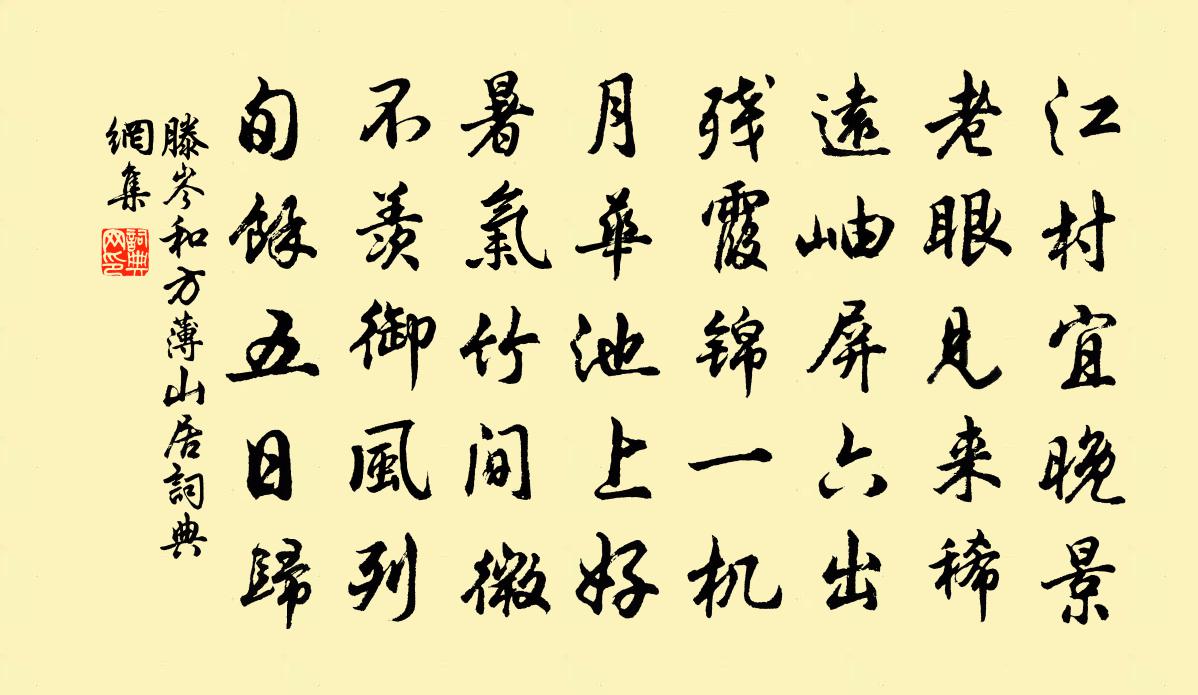 江村宜晚景
老眼見来稀
遠岫屏六出
残霞錦一机
月華池上好
暑氣竹間微
不羨御風列
旬餘五日歸
滕岑和方薄山居詞典
網集
詞典網印